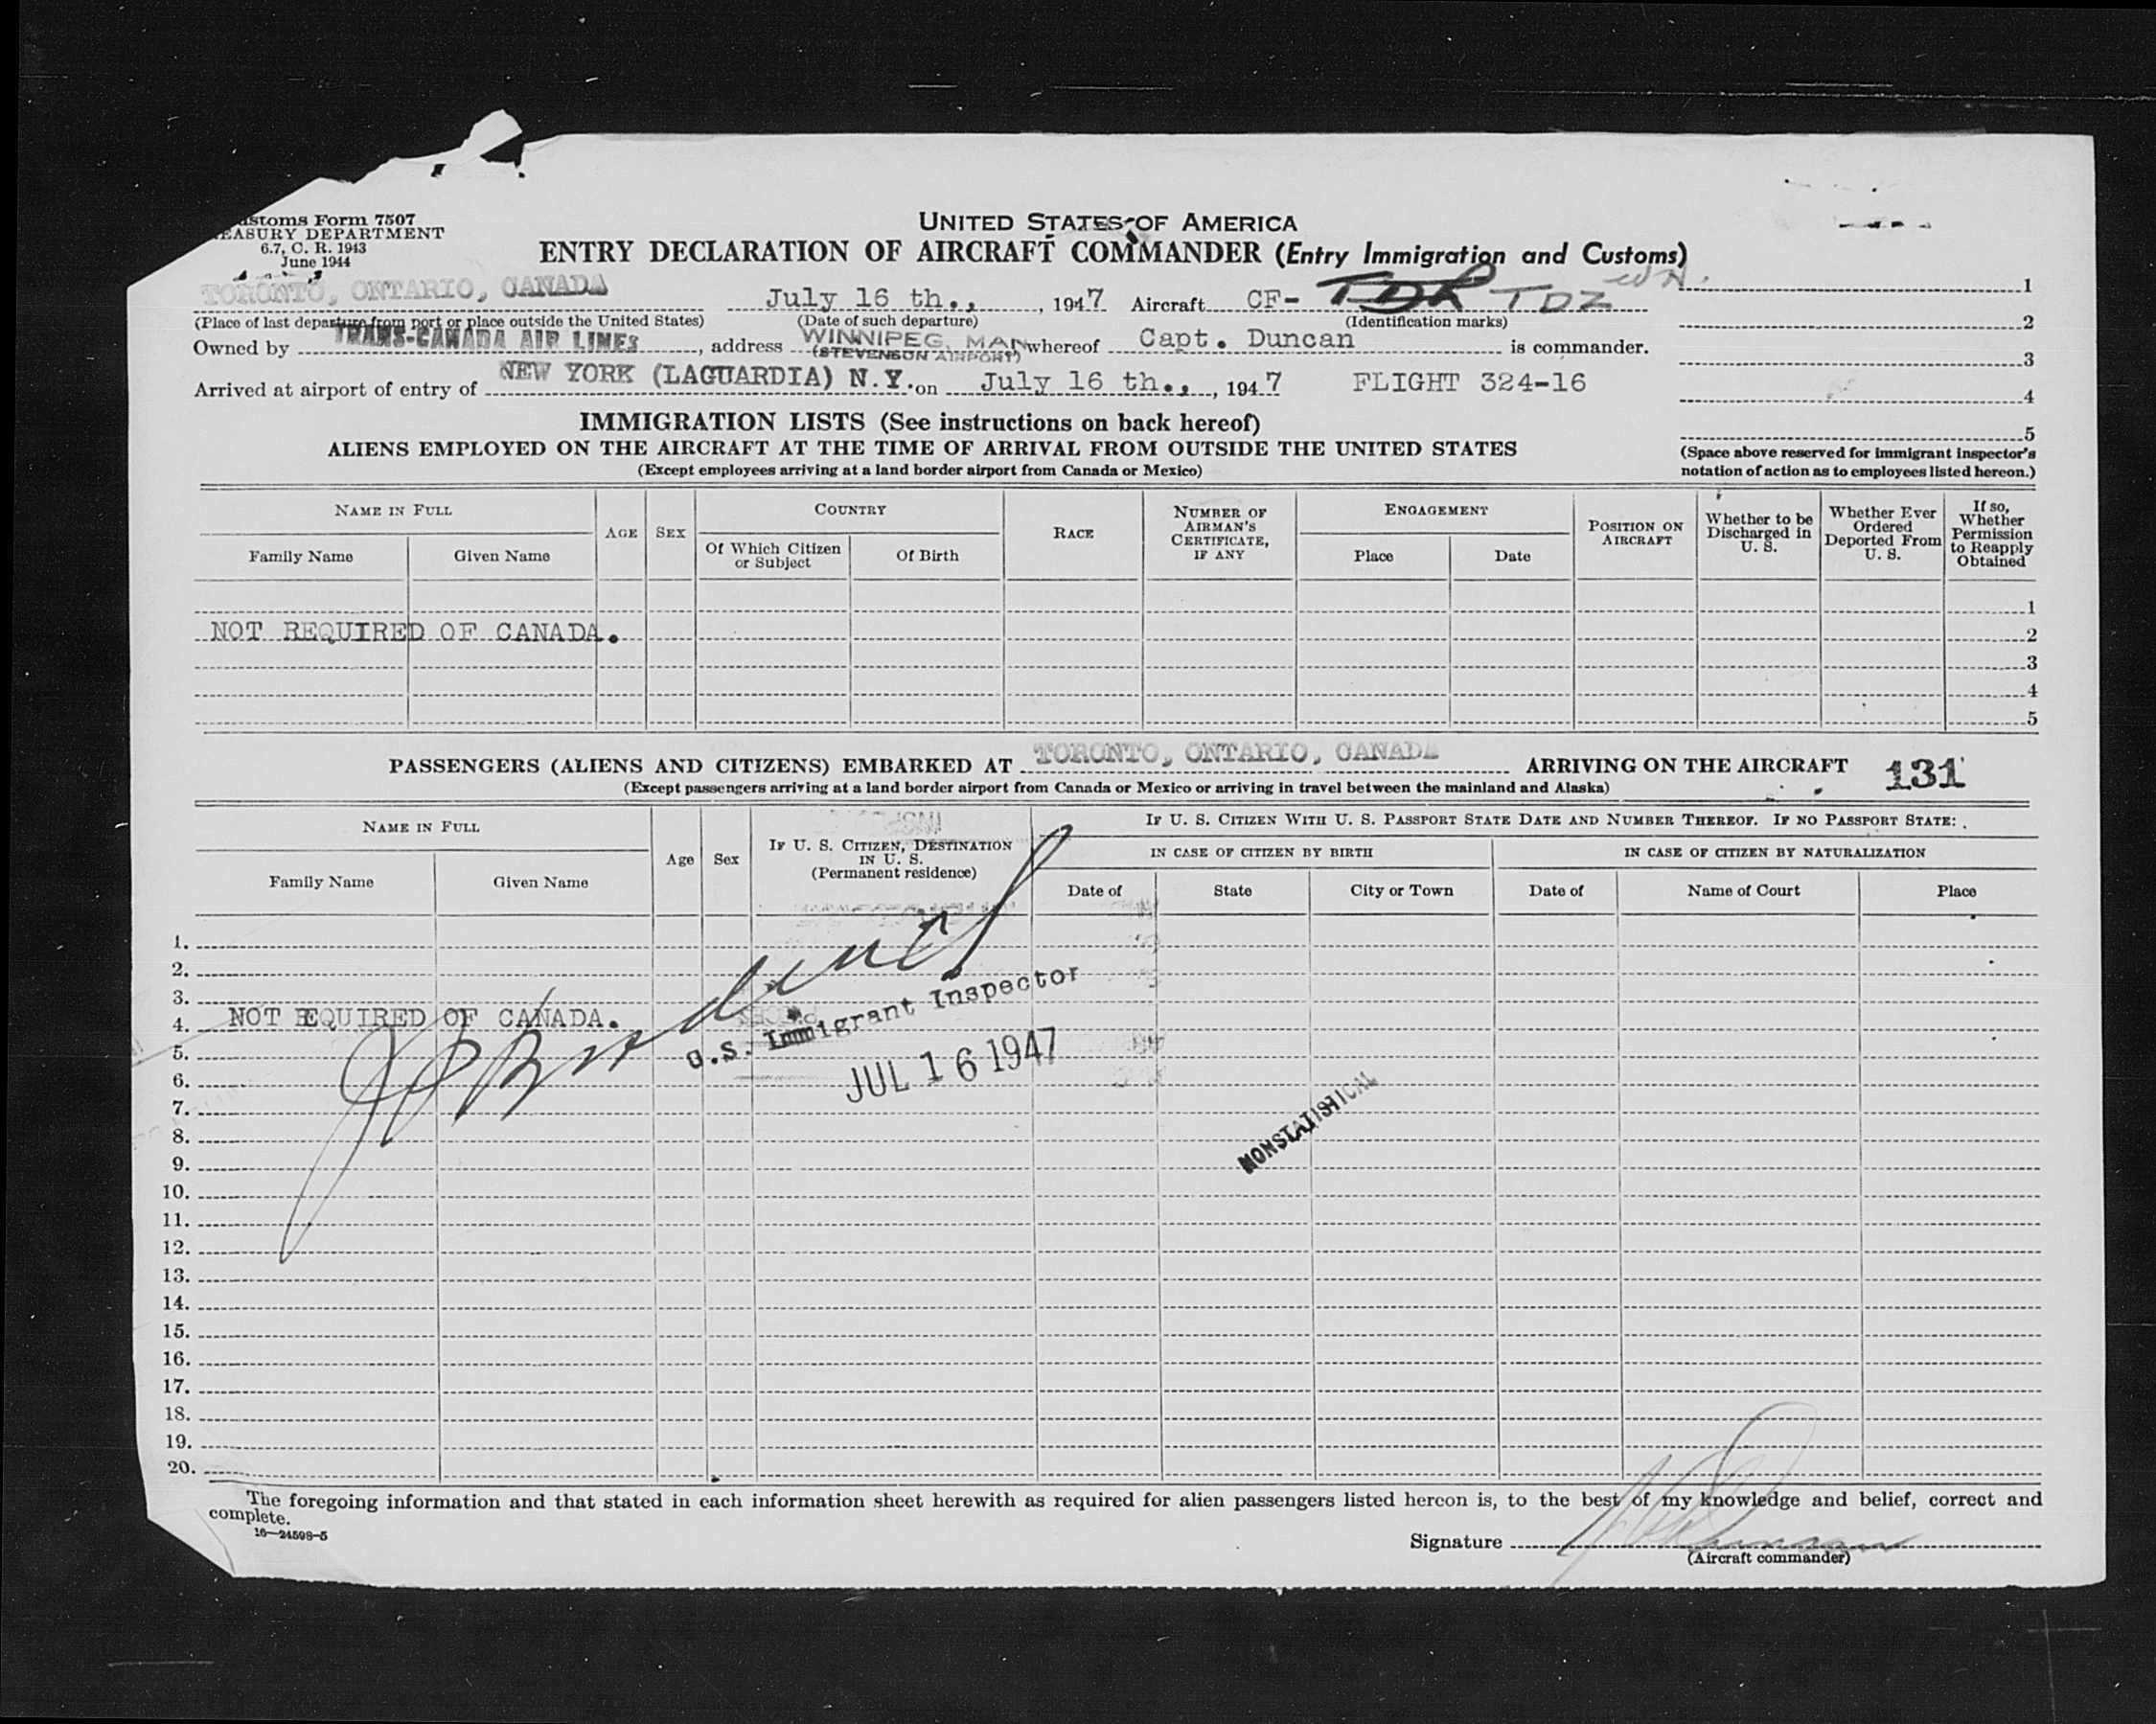 Customs Form 7507
TREASURY DEPARTMENT
6.7, C. R. 1943
June 1944
UNITED STATES OF AMERICA
ENTRY DECLARATION OF AIRCRAFT COMMANDER (Entry Immigration and Customs)
TORONTO, ONTARIO, CANADA July 16 th., , 1947 Aircraft CF- TDR TDZ 1
(Place of last departure from port or place outside the United States) (Date of such departure) (Identification marks) 2
Owned by TRANS-CANADA AIR LINES, address WINNIPEG, MAN (STEVENSON AIRPORT) whereof Capt. Duncan is commander.
3
Arrived at airport of entry of NEW YORK (LAGUARDIA) N.Y. on July 16 th., , 1947 FLIGHT 324-16
4
IMMIGRATION LISTS (See instructions on back hereof)
5
ALIENS EMPLOYED ON THE AIRCRAFT AT THE TIME OF ARRIVAL FROM OUTSIDE THE UNITED STATES
(Except employees arriving at a land border airport from Canada or Mexico)
(Space above reserved for immigrant inspector's
notation of action as to employees listed hereon.)
NAME IN FULL
Family Name Given Name
AGE SEX
COUNTRY
Of Which Citizen or Subject Of Birth
RACE
NUMBER OF AIRMAN'S CERTIFICATE, IF ANY
ENGAGEMENT
Place Date
POSITION ON AIRCRAFT
Whether to be Discharged in U. S.
Whether Ever Ordered Deported From U. S.
If so, Whether Permission to Reapply Obtained
1
NOT REQUIRED OF CANADA. 2
3
4
5
PASSENGERS (ALIENS AND CITIZENS) EMBARKED AT TORONTO, ONTARIO, CANADA ARRIVING ON THE AIRCRAFT 131
(Except passengers arriving at a land border airport from Canada or Mexico or arriving in travel between the mainland and Alaska)
NAME IN FULL
Family Name Given Name
Age Sex
IF U. S. CITIZEN, DESTINATION IN U. S. (Permanent residence)
IF U. S. CITIZEN WITH U. S. PASSPORT STATE DATE AND NUMBER THEREOF. IF NO PASSPORT STATE:
IN CASE OF CITIZEN BY BIRTH IN CASE OF CITIZEN BY NATURALIZATION
Date of State City or Town Date of Name of Court Place
1.
2.
3.
4. NOT REQUIRED OF CANADA.
U.S. Immigrant Inspector
5.
JUL 16 1947
6.
7.
8.
NONSTATISTICAL
9.
10.
11.
12.
13.
14.
15.
16.
17.
18.
19.
20.
The foregoing information and that stated in each information sheet herewith as required for alien passengers listed hereon is, to the best of my knowledge and belief, correct and
complete.
16—24598-5
Signature
(Aircraft commander)